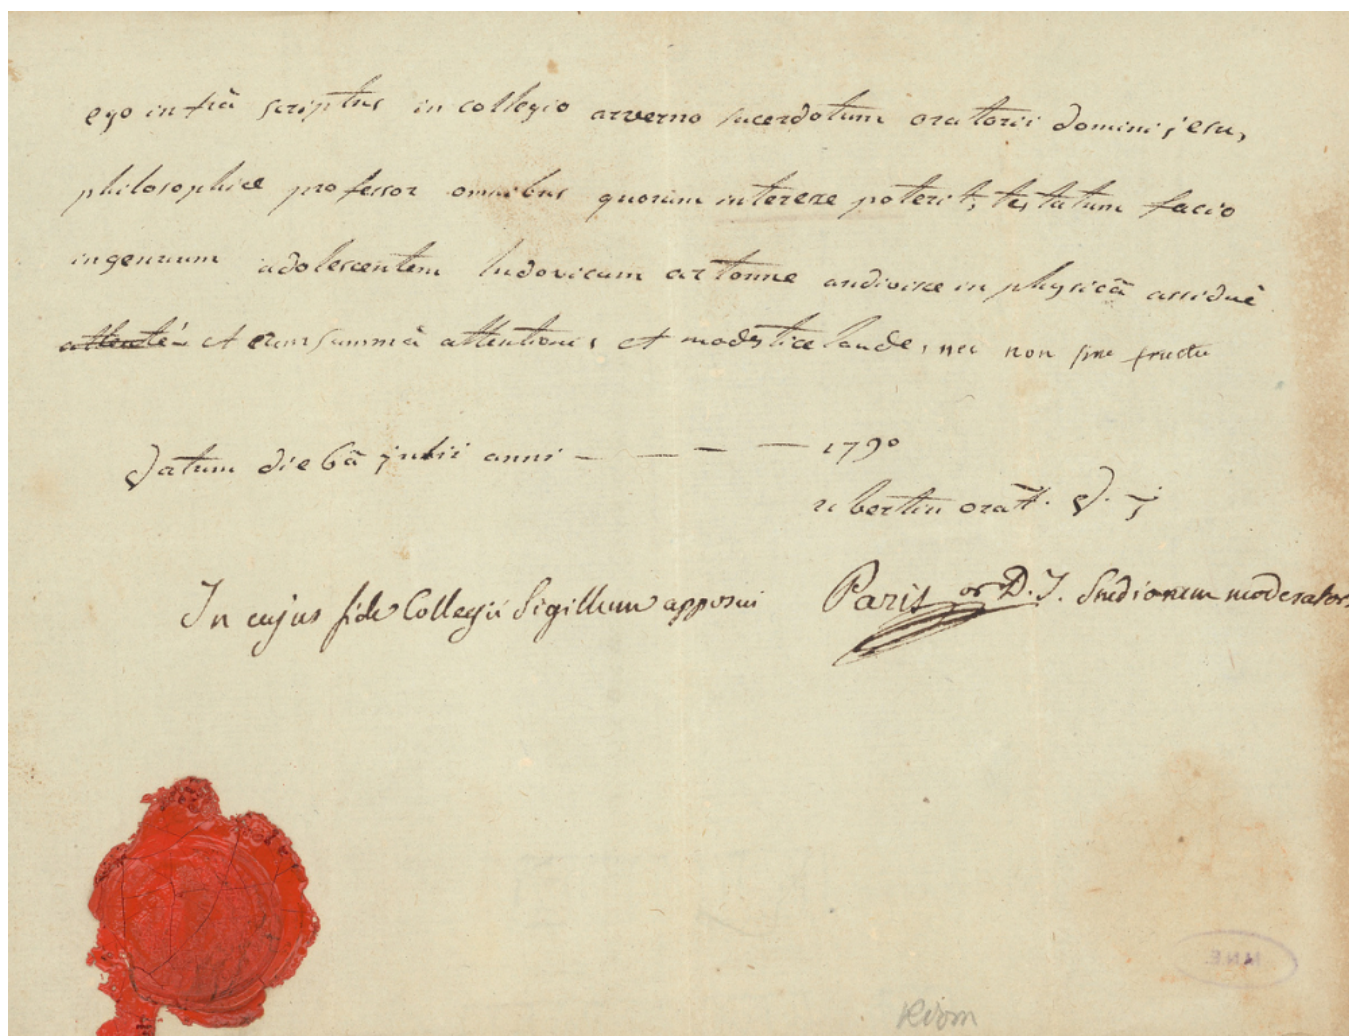 ego infrà scriptus in collegio arverno sacerdotum oratorii domini jesu,
philosophiæ professor omnibus quorum interesse poterit, testatum facio
ingenuum adolescentem ludovicum artonne audivisse in physicâ assiduè
attentè et cum summâ attentionis et modestiæ laude, nec non sine fructu
Datum die 6â julii anni — — — — 1790
orat. D. j
In cujus fide Collegii Sigillum apposui Paris or D. J. Studiorum moderator.
M.N.E.
Riom